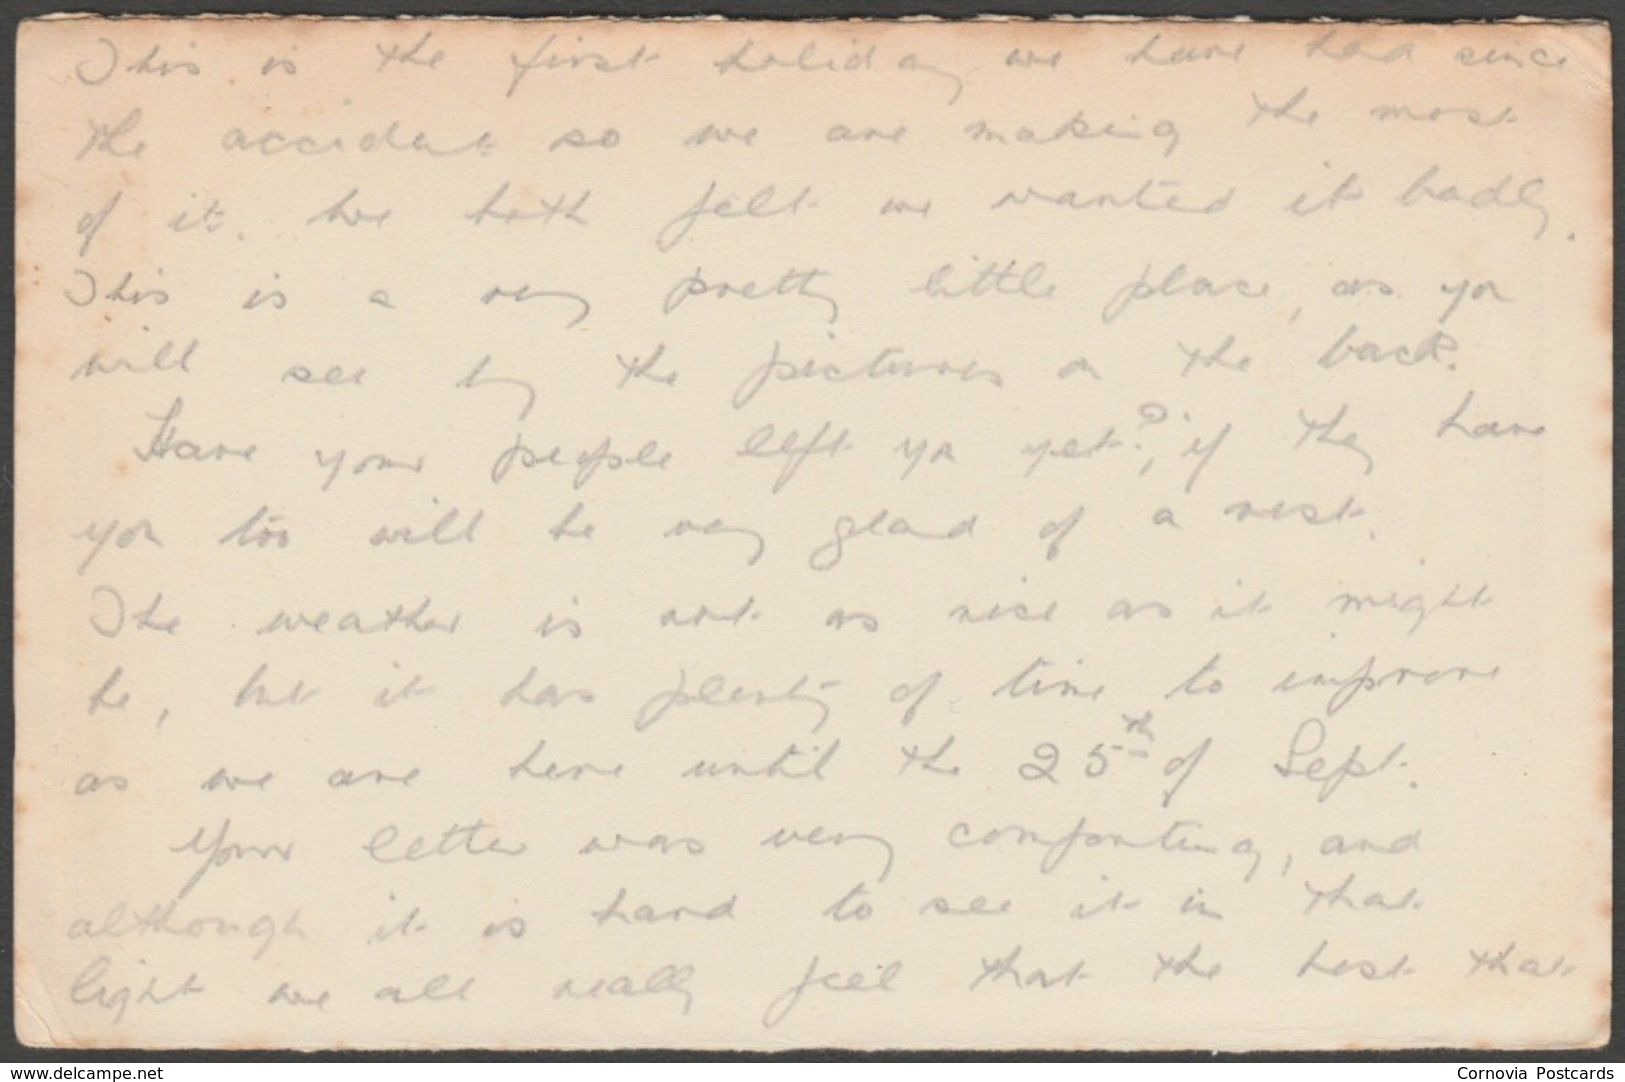 This is the first holiday we have had since
the accident so we are making the most
of it. We both felt we wanted it badly.
This is a very pretty little place, as you
will see by the pictures on the back.
Have your people left you yet?, if they have
you too will be very glad of a rest.
The weather is not as nice as it might
be, but it has plenty of time to improve
as we are here until the 25th of Sept.
Your letter was very comforting, and
although it is hard to see it in that
light we all really feel that the best that
www.delcampe.net
Cornovia Postcards